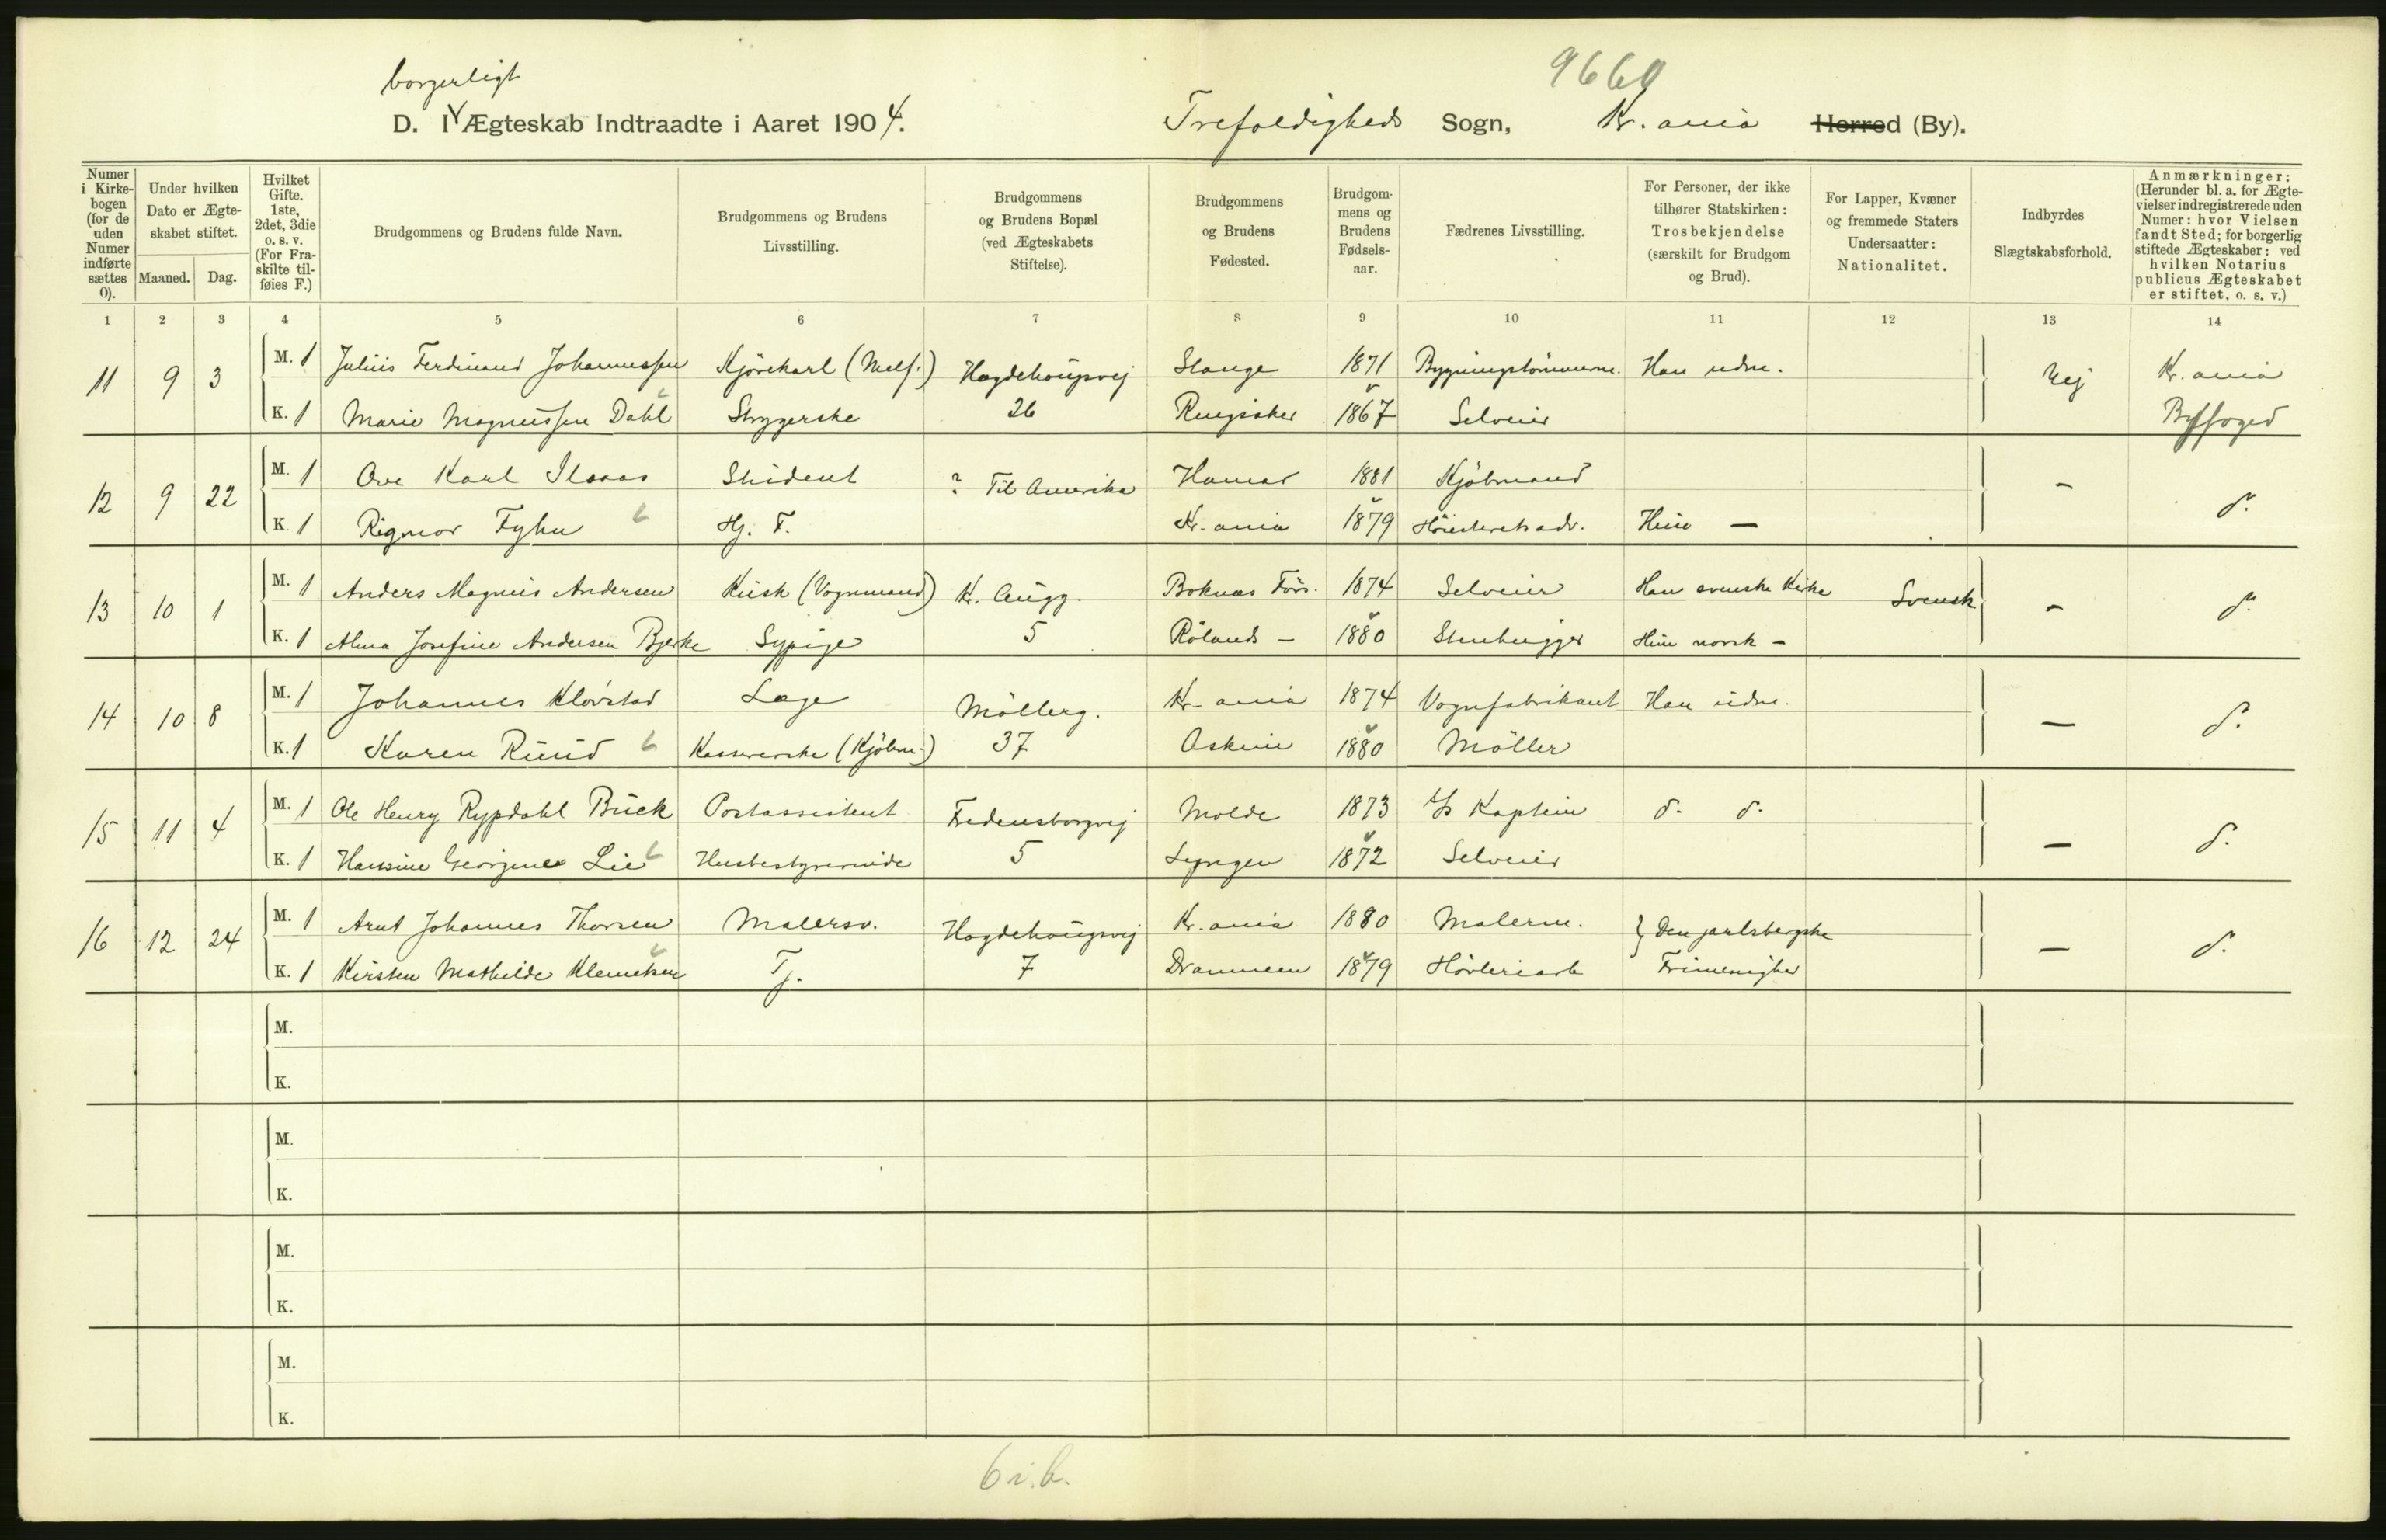 borgerligt
9660
D. I Ægteskab Indtraadte i Aaret 1904. Trefoldigheds Sogn, Kr.ania Herred (By).
Numer i Kirkebogen (for de uden Numer indførte sættes 0). Under hvilken Dato er Ægteskabet stiftet. Maaned. Dag. Hvilket Gifte. 1ste, 2det, 3die o. s. v. (For Fraskilte tilføies F.) Brudgommens og Brudens fulde Navn. Brudgommens og Brudens Livsstilling. Brudgommens og Brudens Bopæl (ved Ægteskabets Stiftelse). Brudgommens og Brudens Fødested. Brudgommens og Brudens Fødselsaar. Fædrenes Livsstilling. For Personer, der ikke tilhører Statskirken: Trosbekjendelse (særskilt for Brudgom og Brud). For Lapper, Kvæner og fremmede Staters Undersaatter: Nationalitet. Indbyrdes Slægtskabsforhold. Anmærkninger: (Herunder bl. a. for Ægtevielser indregistrerede uden Numer: hvor Vielsen fandt Sted; for borgerlig stiftede Ægteskaber: ved hvilken Notarius publicus Ægteskabet er stiftet, o. s. v.)
1 2 3 4 5 6 7 8 9 10 11 12 13 14
11 9 3 M. 1 Julius Ferdinand Johannessen Kjørekarl (Melf.) Hægdehougsvej Stange 1871 Bygningstømmerm. Han udm. Nej Kr.ania
K. 1 Marie Magnussen Dahl Strygerske 26 Ringsaker 1867 Selveier Byfoged
12 9 22 M. 1 Ove Karl Ilsaas Student ? Til Amerika Hamar 1881 Kjøbmand - d.
K. 1 Rigmor Fyhn Hj. F. Kr.ania 1879 Høiesteretsadv. Hun —
13 10 1 M. 1 Anders Magnus Andersen Kusk (Vognmand) Kr. Augg. Boknæs Førs. 1874 Selveier Han svenske Kirke Svensk - d.
K. 1 Alma Josefine Andersen Bjerke Sypige 5 Rølands - 1880 Stenhugger Hun norsk -
14 10 8 M. 1 Johannes Kløvstad Læge Møllerg. Kr.ania 1874 Vognfabrikant Han udm. — d.
K. 1 Karen Ruud Kassererske (Kjøbm.) 37 Askim 1880 Møller
15 11 4 M. 1 Ole Henry Rypdahl Buck Postassistent Fredensborgvej Molde 1873 Kaptein d. d. — d.
K. 1 Hansine Georgine Lie Husbestyrerinde 5 Lyngen 1872 Selveier
16 12 24 M. 1 Arnt Johannes Thorsen Malersv. Hægdehougsvej Kr.ania 1880 Malerm. } Den jarlsbergske — d.
K. 1 Kirsten Mathilde Klemetsen Tj. 7 Drammen 1879 Høvleriarb Frimenighed
M.
K.
M.
K.
M.
K.
M.
K.
6 i.b.